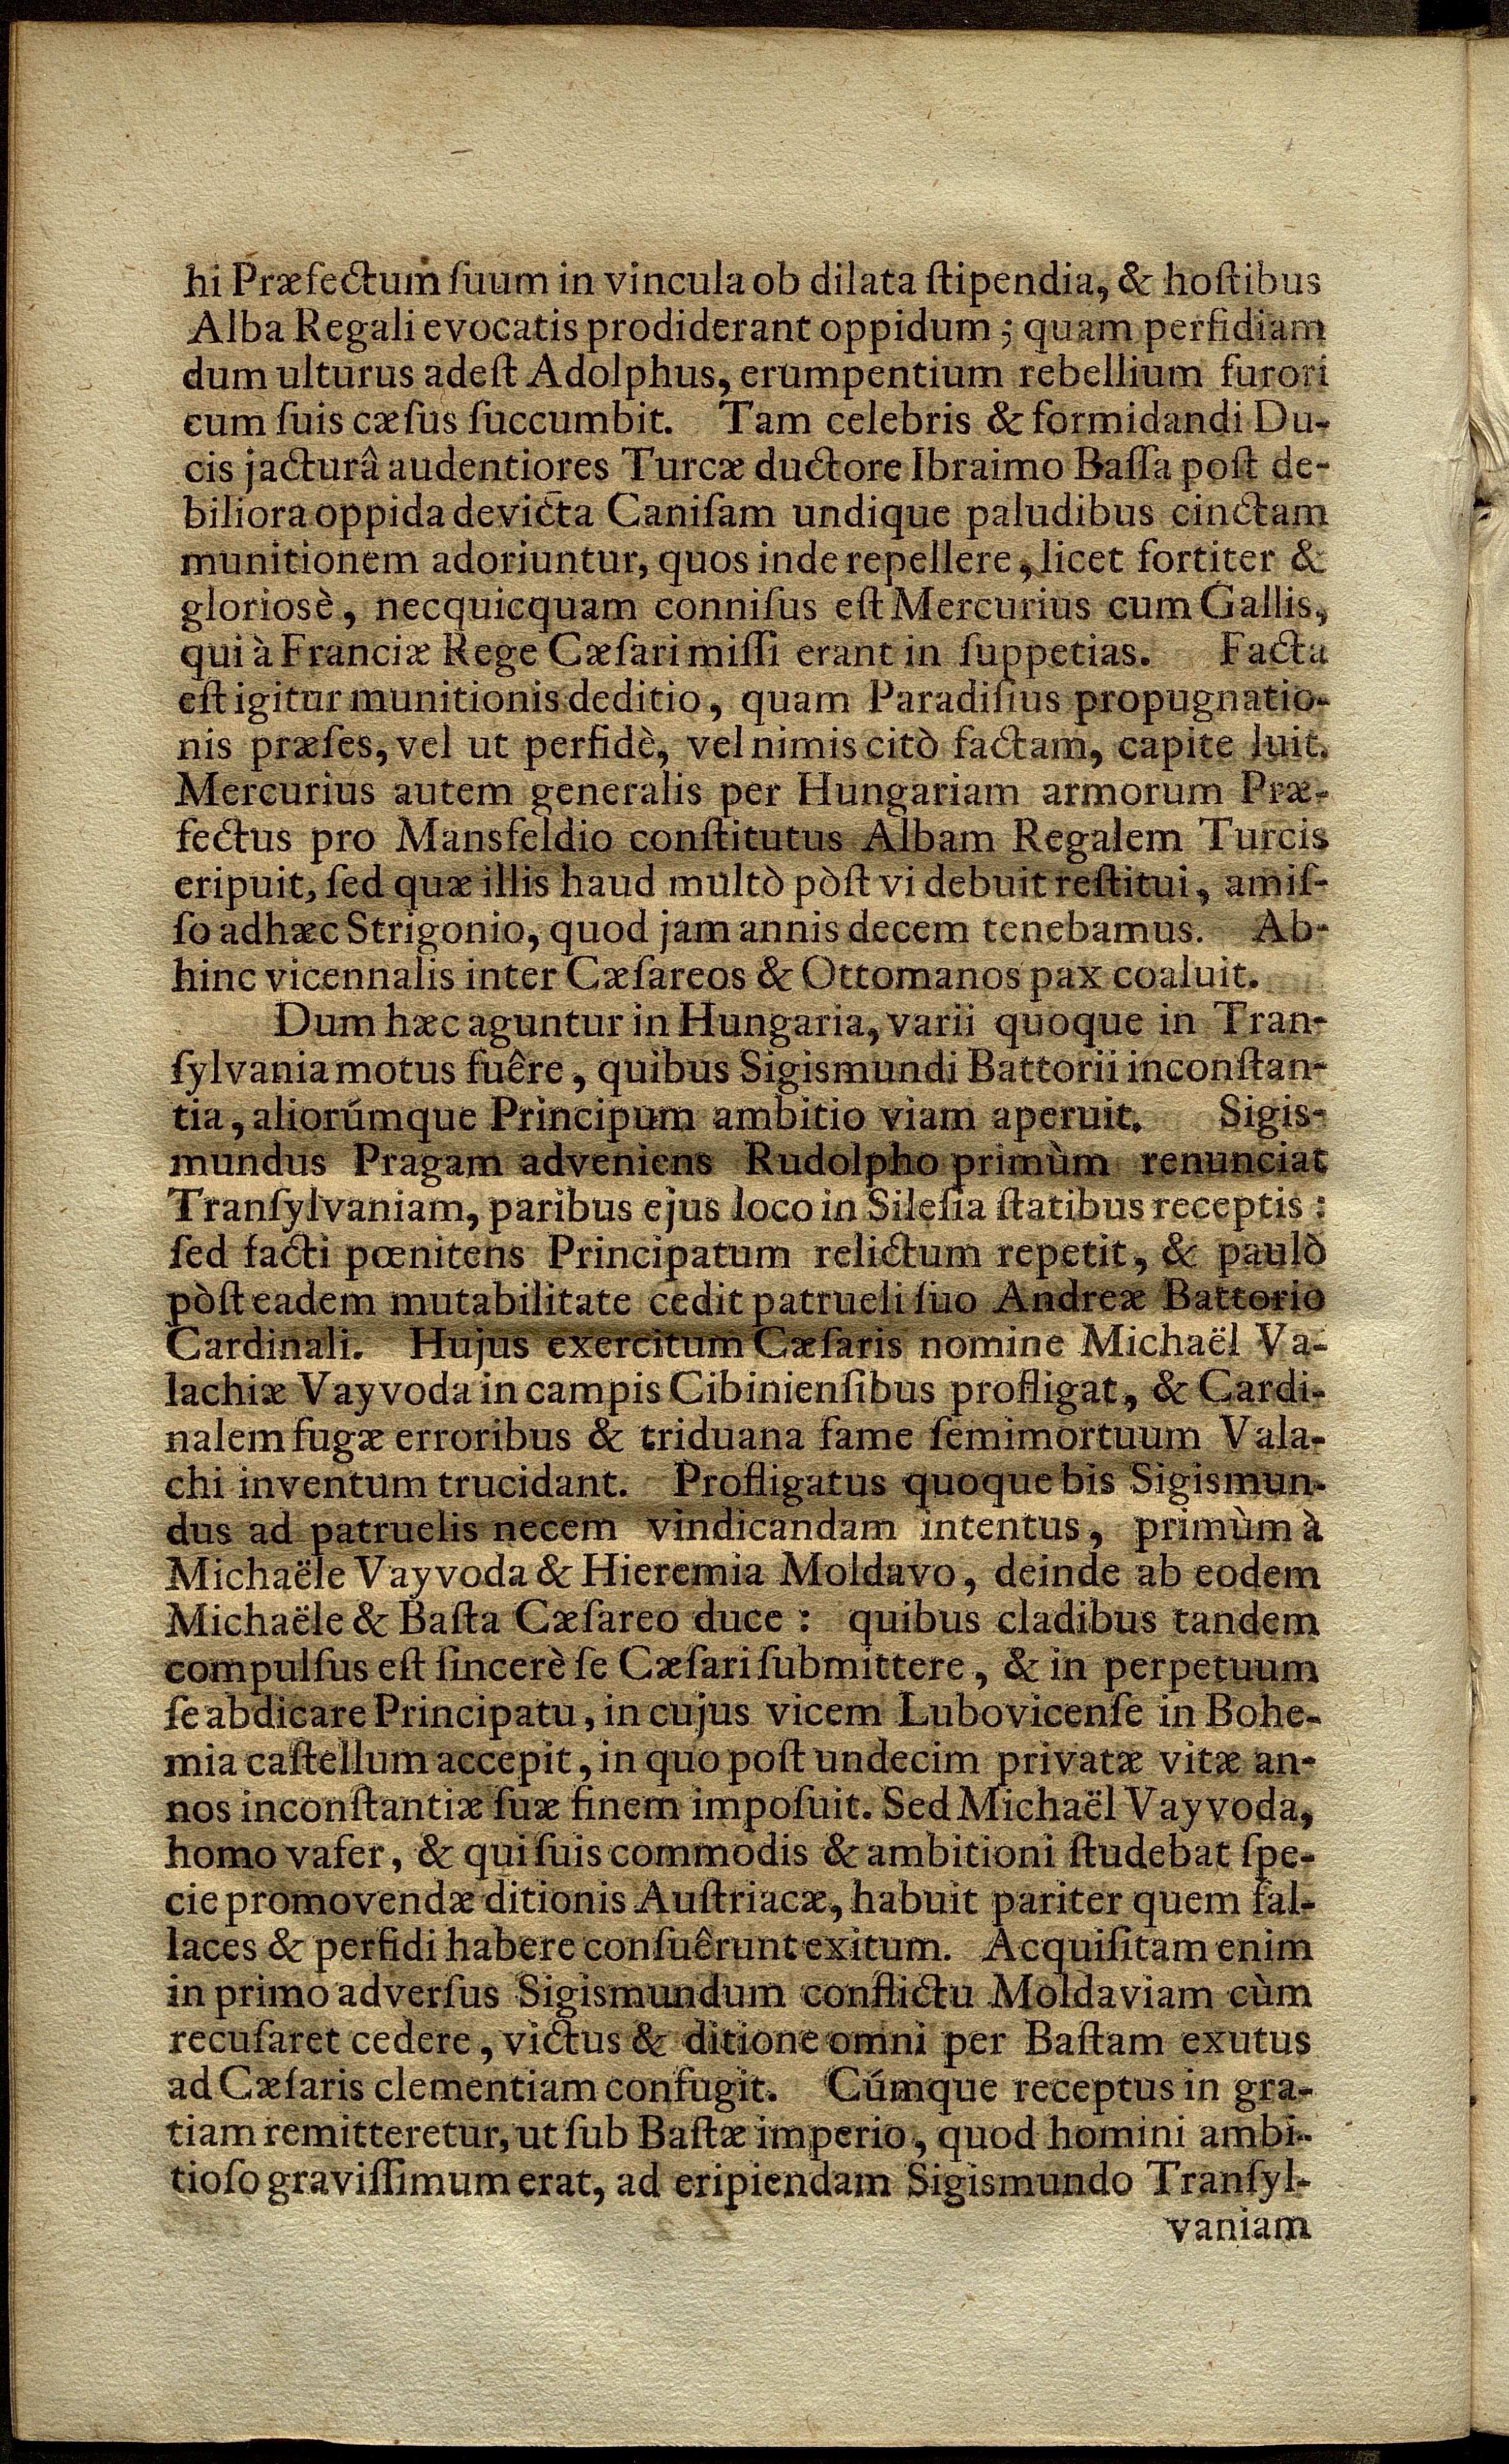 hi Præfectum ſuum in vincula ob dilata ſtipendia, & hoſtibus
Alba Regali evocatis prodiderant oppidum; quam perfidiam
dum ulturus adeſt Adolphus, erumpentium rebellium furori
cum ſuis cæſus ſuccumbit. Tam celebris & formidandi Du-
cis jacturâ audentiores Turcæ ductore Ibraimo Baſſa poſt de-
biliora oppida devicta Caniſam undique paludibus cinctam
munitionem adoriuntur, quos inde repellere, licet fortiter &
gloriosè, necquicquam conniſus eſt Mercurius cum Gallis,
qui à Franciæ Rege Cæſari miſſi erant in ſuppetias. Facta
eſt igitur munitionis deditio, quam Paradiſius propugnatio-
nis præſes, vel ut perfidè, vel nimis citò factam, capite luit.
Mercurius autem generalis per Hungariam armorum Præ-
fectus pro Mansfeldio conſtitutus Albam Regalem Turcis
eripuit, ſed quæ illis haud multò pòſt vi debuit reſtitui, amiſ-
ſo adhæc Strigonio, quod jam annis decem tenebamus. Ab-
hinc vicennalis inter Cæſareos & Ottomanos pax coaluit.
Dum hæc aguntur in Hungaria, varii quoque in Tran-
ſylvania motus fuêre, quibus Sigismundi Battorii inconſtan-
tia, aliorúmque Principum ambitio viam aperuit. Sigis-
mundus Pragam adveniens Rudolpho primùm renunciat
Tranſylvaniam, paribus ejus loco in Sileſia ſtatibus receptis:
ſed facti pœnitens Principatum relictum repetit, & paulò
pòſt eadem mutabilitate cedit patrueli ſuo Andreæ Battorio
Cardinali. Hujus exercitum Cæſaris nomine Michaël Va-
lachiæ Vayvoda in campis Cibinienſibus profligat, & Cardi-
nalem fugæ erroribus & triduana fame ſemimortuum Vala-
chi inventum trucidant. Profligatus quoque bis Sigismun-
dus ad patruelis necem vindicandam intentus, primùm à
Michaële Vayvoda & Hieremia Moldavo, deinde ab eodem
Michaële & Baſta Cæſareo duce: quibus cladibus tandem
compulſus eſt ſincerè ſe Cæſari ſubmittere, & in perpetuum
ſe abdicare Principatu, in cujus vicem Lubovicenſe in Bohe-
mia caſtellum accepit, in quo poſt undecim privatæ vitæ an-
nos inconſtantiæ ſuæ finem impoſuit. Sed Michaël Vayvoda,
homo vafer, & qui ſuis commodis & ambitioni ſtudebat ſpe-
cie promovendæ ditionis Auſtriacæ, habuit pariter quem fal-
laces & perfidi habere conſuêrunt exitum. Acquiſitam enim
in primo adverſus Sigismundum conflictu Moldaviam cùm
recuſaret cedere, victus & ditione omni per Baſtam exutus
ad Cæſaris clementiam confugit. Cúmque receptus in gra-
tiam remitteretur, ut ſub Baſtæ imperio, quod homini ambi-
tioſo graviſſimum erat, ad eripiendam Sigismundo Tranſyl-
vaniam